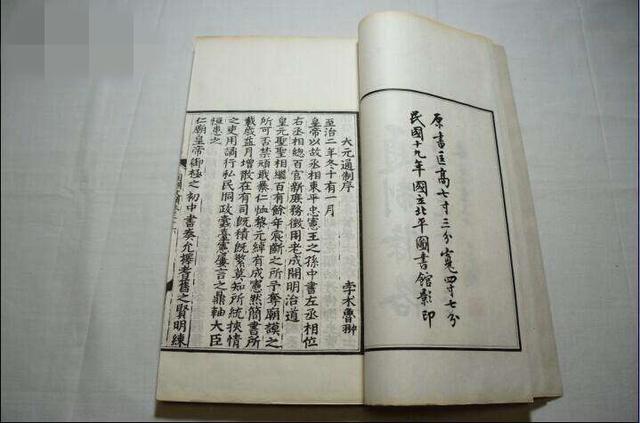 原書匡高七寸三分寬四寸七分
民國十九年國立北平圖書館影印
大元通制序
孛术魯翀
至治二年冬十有一月
皇帝以故丞相東平忠憲王之孫中書左丞相位
右丞相總百官新庶務徵用老成開明治道
皇元聖聖相繼百有餘年宸斷之所予奪廟謨之
所可否禁頑戢暴仁恤黎元綽有成憲然簡書所
載歲益月增散在有司既積既繁莫知所統挾情
之吏用譎行私民恫政蠹臺憲屢言之鼎軸大臣
恒患之
仁廟皇帝御極之初中書奏允擇耆舊之賢明練